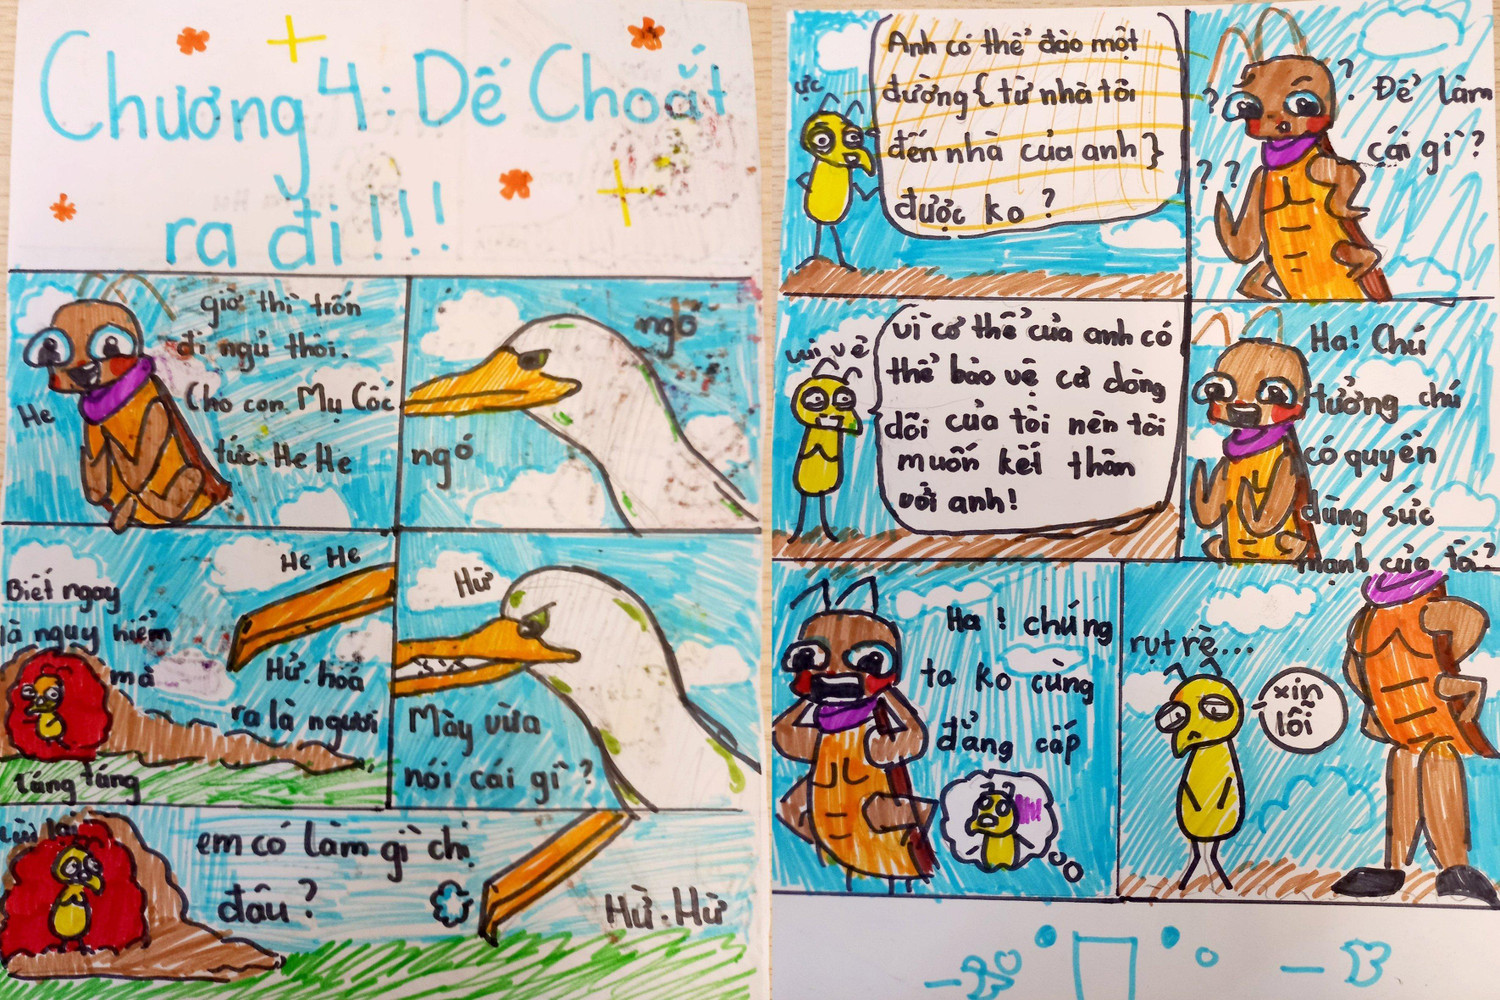 Chương 4: Dế Choắt
ra đi!!!
giờ thì trốn
đi ngủ thôi.
Cho con Mụ Cốc
tức. He He
He
ngó
ngó
He He
Biết ngay
là nguy hiểm
mà
Hử. hoá
ra là người
táng táng
Hừ
Mày vừa
nói cái gì?
em có làm gì chị
đâu?
Hừ. Hừ
ực
Anh có thể đào một
đường { từ nhà tôi
đến nhà của anh }
được ko?
? ? ? ?
Để làm
cái gì?
vui vẻ
vì cơ thể của anh có
thể bảo vệ cơ dòng
dõi của tôi nên tôi
muốn kết thân
với anh!
Ha! Chú
tưởng chú
có quyền
dùng sức
mạnh của tôi?
Ha! chúng
ta ko cùng
đẳng cấp
rụt rè...
xin
lỗi